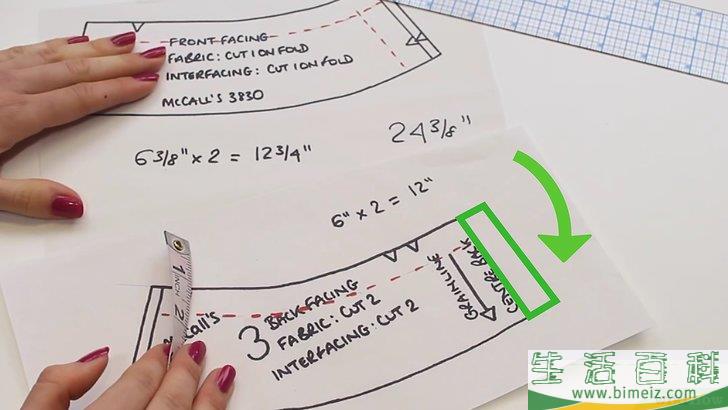 FRONT FACING
FABRIC: CUT 1 ON FOLD
INTERFACING: CUT 1 ON FOLD
McCALL'S 3830
6 3/8" x 2 = 12 3/4"
24 3/8"
6" x 2 = 12"
CENTRE BACK
GRAINLINE
3
BACK FACING
FABRIC: CUT 2
INTERFACING: CUT 2
1
2
生活百科
www.bimeiz.com